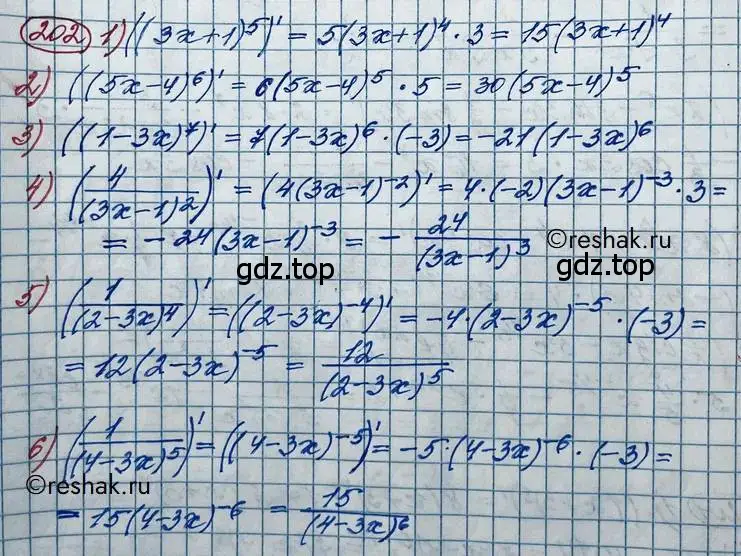 202 1) ((3x+1)⁵)' = 5(3x+1)⁴ · 3 = 15(3x+1)⁴
2) ((5x-4)⁶)' = 6(5x-4)⁵ · 5 = 30(5x-4)⁵
3) ((1-3x)⁷)' = 7(1-3x)⁶ · (-3) = -21(1-3x)⁶
4) (4/(3x-1)²)' = (4(3x-1)⁻²)' = 4·(-2)(3x-1)⁻³ · 3 =
= -24(3x-1)⁻³ = - 24/(3x-1)³
©reshak.ru
gdz.top gdz.top
5) (1/(2-3x)⁴)' = ((2-3x)⁻⁴)' = -4·(2-3x)⁻⁵ · (-3) =
= 12(2-3x)⁻⁵ = 12/(2-3x)⁵
6) (1/(4-3x)⁵)' = ((4-3x)⁻⁵)' = -5·(4-3x)⁻⁶ · (-3) =
©reshak.ru
= 15(4-3x)⁻⁶ = 15/(4-3x)⁶